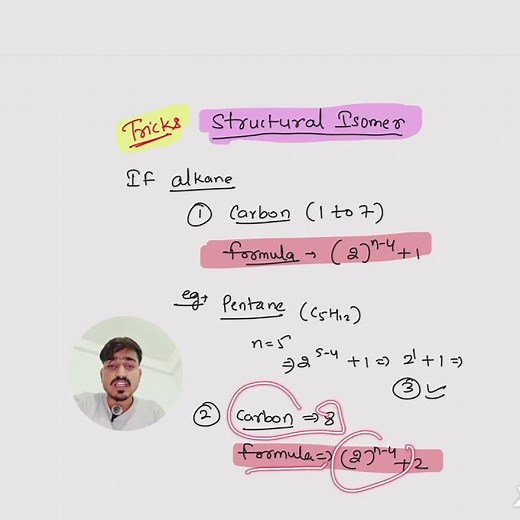 Tricks Structural Isomer
If alkane
① Carbon (1 to 7)
formula → (2)ⁿ⁻⁴+1
eg→ Pentane (C₅H₁₂)
n=5
⇒ 2⁵⁻⁴ +1 ⇒ 2¹+1 ⇒
③ ✓
② Carbon ⇒ 8
formula ⇒ (2)ⁿ⁻⁴+2